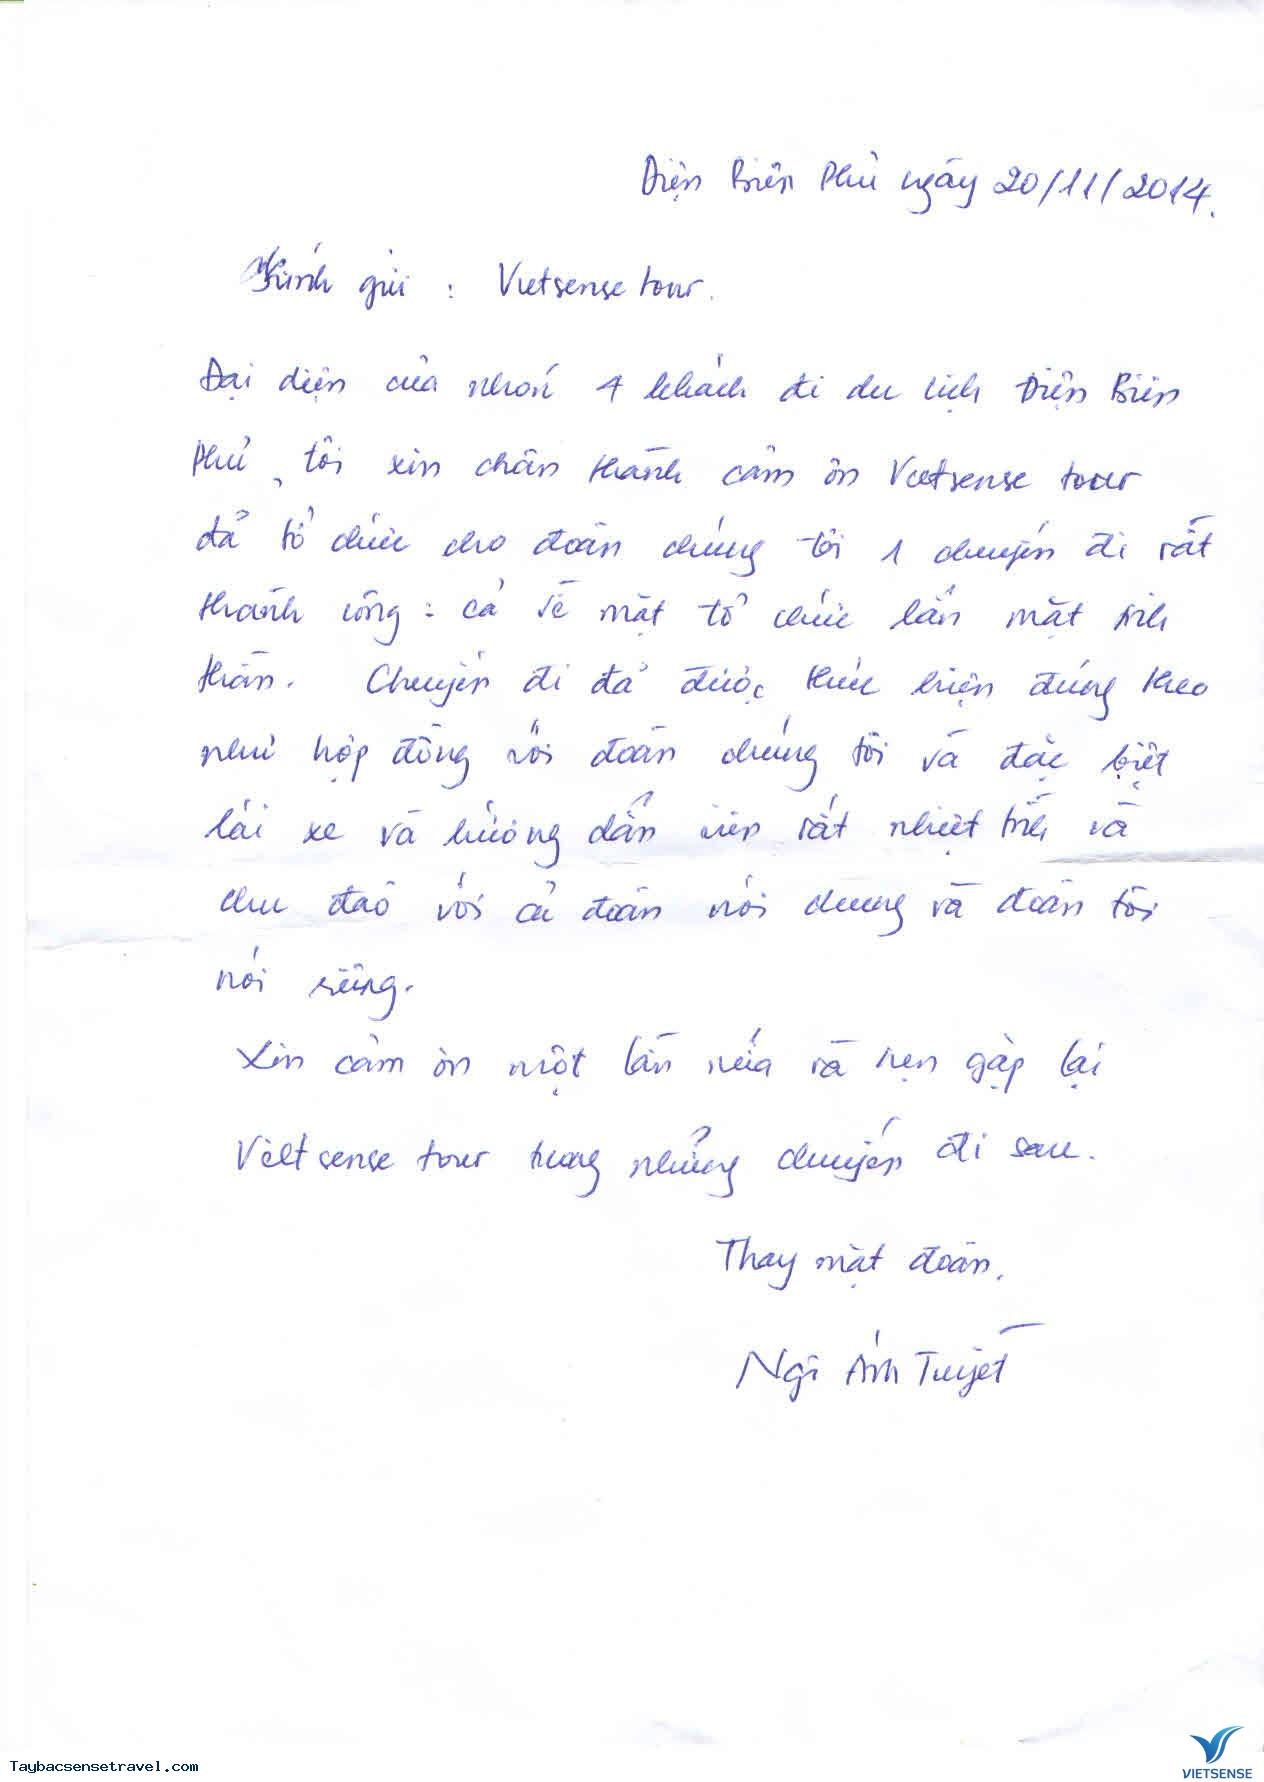 Điện Biên Phủ ngày 20/11/2014.
Kính gửi : Vietsense tour.
Đại diện của nhóm 4 khách đi du lịch Điện Biên
Phủ, tôi xin chân thành cảm ơn Vietsense tour
đã tổ chức cho đoàn chúng tôi 1 chuyến đi rất
thành công : cả về mặt tổ chức lẫn mặt tinh
thần. Chuyến đi đã được thực hiện đúng theo
như hợp đồng với đoàn chúng tôi và đặc biệt
lái xe và hướng dẫn viên rất nhiệt tình và
chu đáo với cả đoàn nói chung và đoàn tôi
nói riêng.
Xin cảm ơn một lần nữa và hẹn gặp lại
Vietsense tour trong những chuyến đi sau.
Thay mặt đoàn.
Ánh Tuyết
Taybacsensetravel.com
VIETSENSE